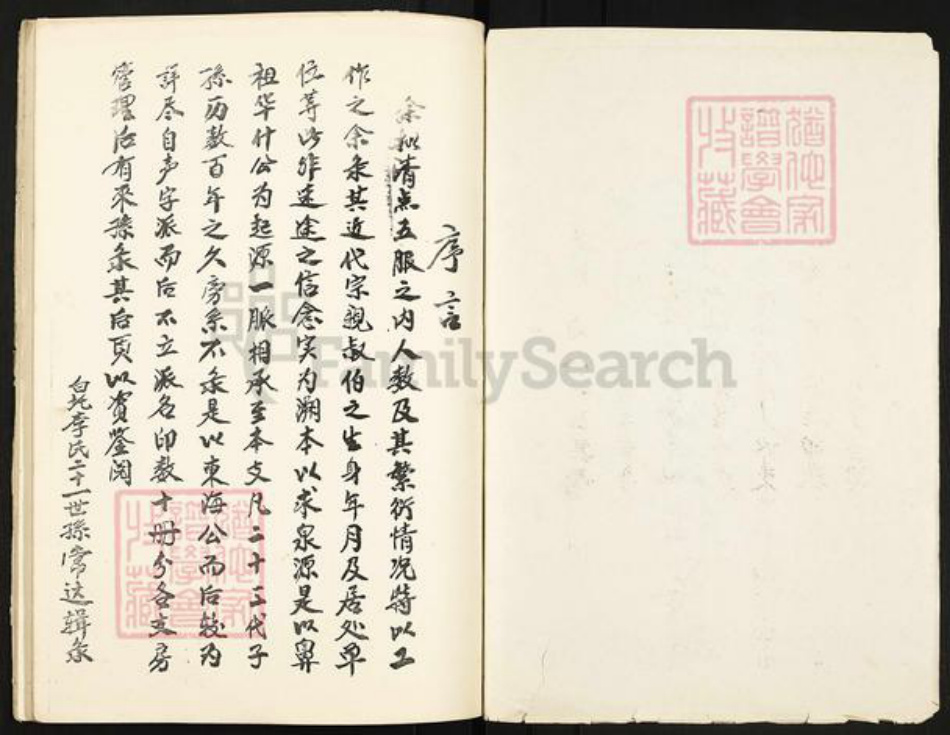 序言
余拟清点五服之内人数及其繁衍情况特以工
作之余录其近代宗亲叔伯之生身年月及居处单
位等此非迷途之信念实为溯本以求泉源是以鼻
祖华什公为起源一脉相承至本支凡二十三代子
孙历数百年之久旁系不录是以東海公而后较为
详尽自声字派而后不立派名印数十册分各支房
管理后有来孫录其后页以资鉴阅
李氏二十一世孫常达辑录
猶他家
譜學會
收藏
猶他家
譜學會
收藏
FamilySearch